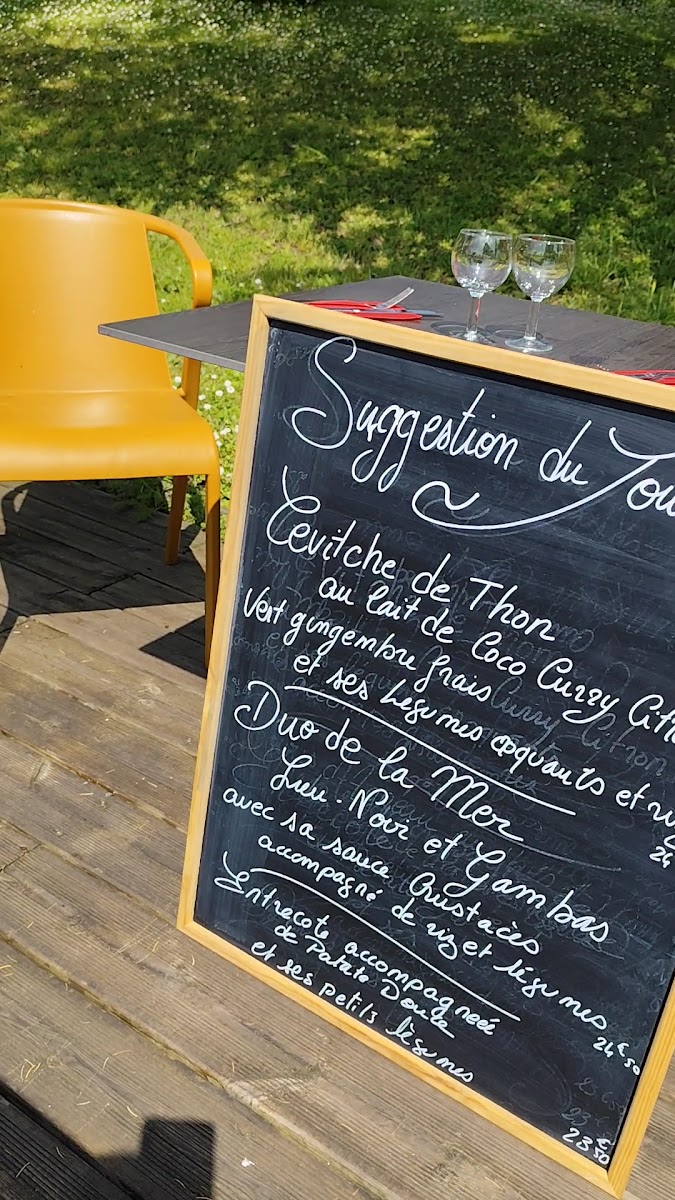 Suggestion du Jou
Cevitche de Thon
au lait de Coco Curry Citr
Vert gingembre frais
et ses légumes croquants et riz
24
Duo de la Mer
Lieu-Noir et Gambas
avec sa sauce Crustacès
accompagné de riz et légumes
24€50
Entrecote accompagneé
de Patate Douce
et ses petits légumes
23€50